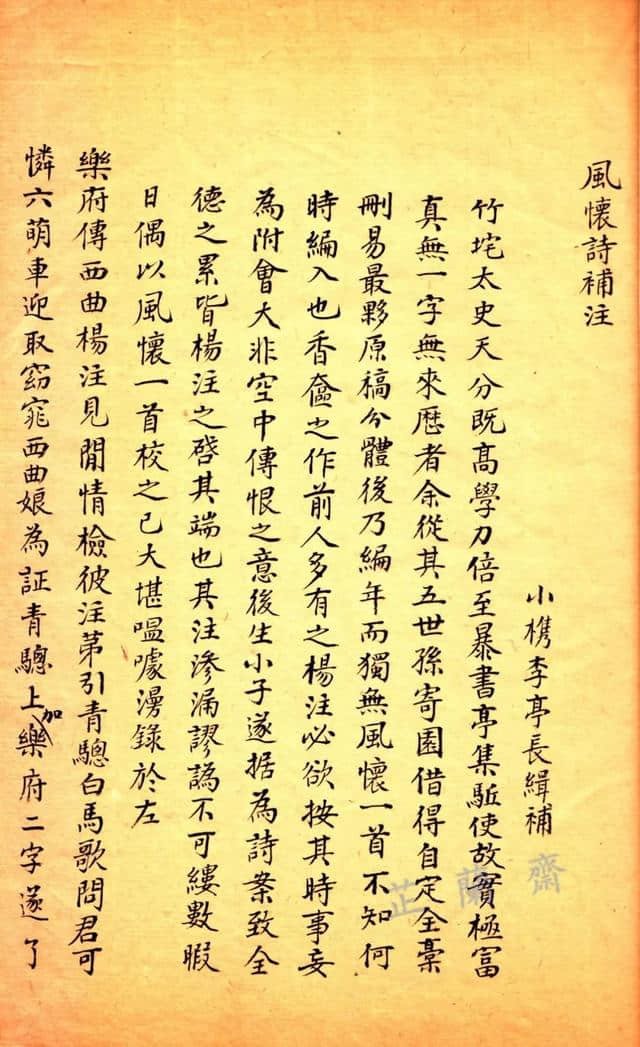 風懷詩補注
小檇李亭長緝補
竹垞太史天分既高學力倍至暴書亭集駈使故實極富
真無一字無來歷者余從其五世孫寄園借得自定全稾
刪易最夥原稿分體後乃編年而獨無風懷一首不知何
時編入也香奩之作前人多有之楊注必欲按其時事妄
為附會大非空中傳恨之意後生小子遂据為詩案致全
德之累皆楊注之啓其端也其注滲漏謬譌不可縷數暇
日偶以風懷一首校之已大堪嗢噱漫錄於左
樂府傳西曲楊注見閒情檢彼注苐引青驄白馬歌問君可
憐六萌車迎取窈窕西曲娘為証青驄上加樂府二字遂了
芷蘭齋